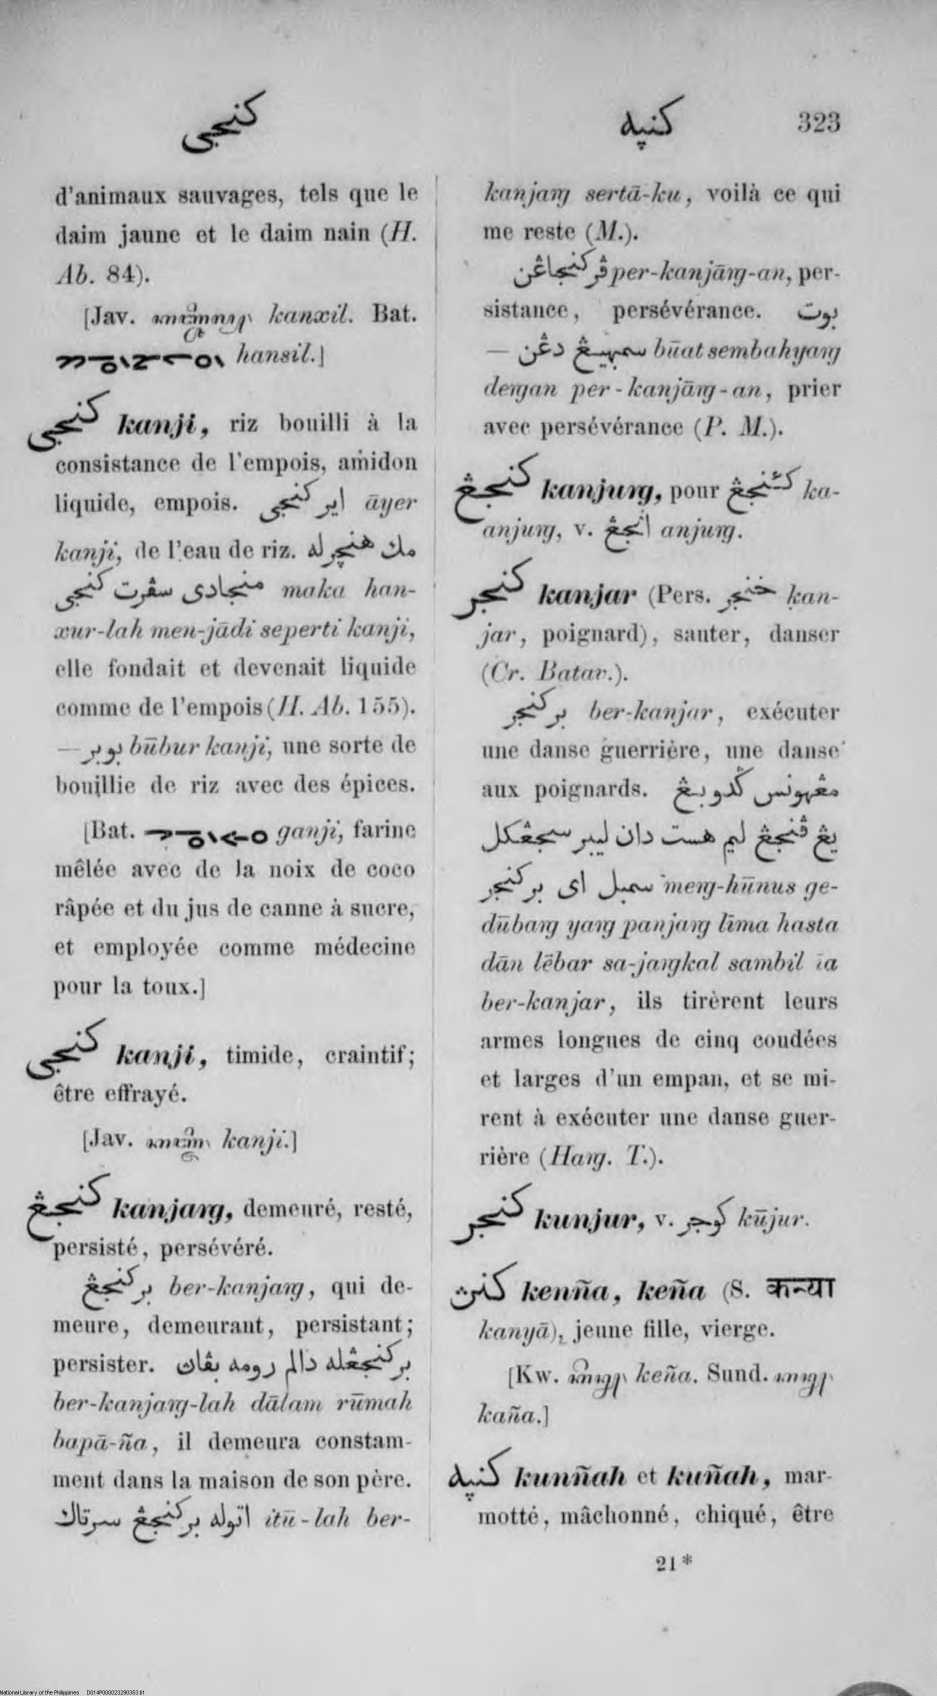 كنجي
كنيه 323
d'animaux sauvages, tels que le
daim jaune et le daim nain (H.
Ab. 84).
[Jav. kanxil. Bat.
hansil.]
كنجي kanji, riz bouilli à la
consistance de l'empois, amidon
liquide, empois. اير كنجي āyer
kanji, de l'eau de riz. مك هنچرله
منجادي سڤرت كنجي maka han-
xur-lah men-jādi seperti kanji,
elle fondait et devenait liquide
comme de l'empois (H. Ab. 155).
— بوبر būbur kanji, une sorte de
bouillie de riz avec des épices.
[Bat. ganji, farine
mêlée avec de la noix de coco
râpée et du jus de canne à sucre,
et employée comme médecine
pour la toux.]
كنجي kanji, timide, craintif;
être effrayé.
[Jav. kanji.]
كنجڠ kanjaŋg, demeuré, resté,
persisté, persévéré.
بركنجڠ ber-kanjaŋg, qui de-
meure, demeurant, persistant;
persister. بركنجڠله دالم رومه بڤاڽ
ber-kanjaŋg-lah dālam rūmah
bapā-ña, il demeura constam-
ment dans la maison de son père.
اتوله بركنجڠ سرتاك itū-lah ber-
kanjaŋg sertā-ku, voilà ce qui
me reste (M.).
ڤركنجاڠن per-kanjāŋg-an, per-
sistance, persévérance. بوت
— سمبهيڠ دڠن būat sembahyaŋg
deŋgan per-kanjāŋg-an, prier
avec persévérance (P. M.).
كنجڠ kanjuŋg, pour كانجڠ ka-
anjuŋg, v. انجڠ anjuŋg.
كنجر kanjar (Pers. خنجر ḳan-
jar, poignard), sauter, danser
(Cr. Batav.).
بركنجر ber-kanjar, exécuter
une danse guerrière, une danse
aux poignards. مڠهونس ݢدوبڠ
يڠ ڤنجڠ ليم هست دان ليبر سجڠكل
سمبل اي بركنجر meŋg-hūnus ge-
dūbaŋg yaŋg panjaŋg līma hasta
dān lēbar sa-jaŋgkal sambil īa
ber-kanjar, ils tirèrent leurs
armes longues de cinq coudées
et larges d'un empan, et se mi-
rent à exécuter une danse guer-
rière (Haŋg. T.).
كنجر kunjur, v. كوجر kūjur.
كنڽ kenña, keña (S. कन्या
kanyā), jeune fille, vierge.
[Kw. keña. Sund.
kaña.]
كنيه kunñah et kuñah, mar-
motté, mâchonné, chiqué, être
21*
National Library of the Philippines